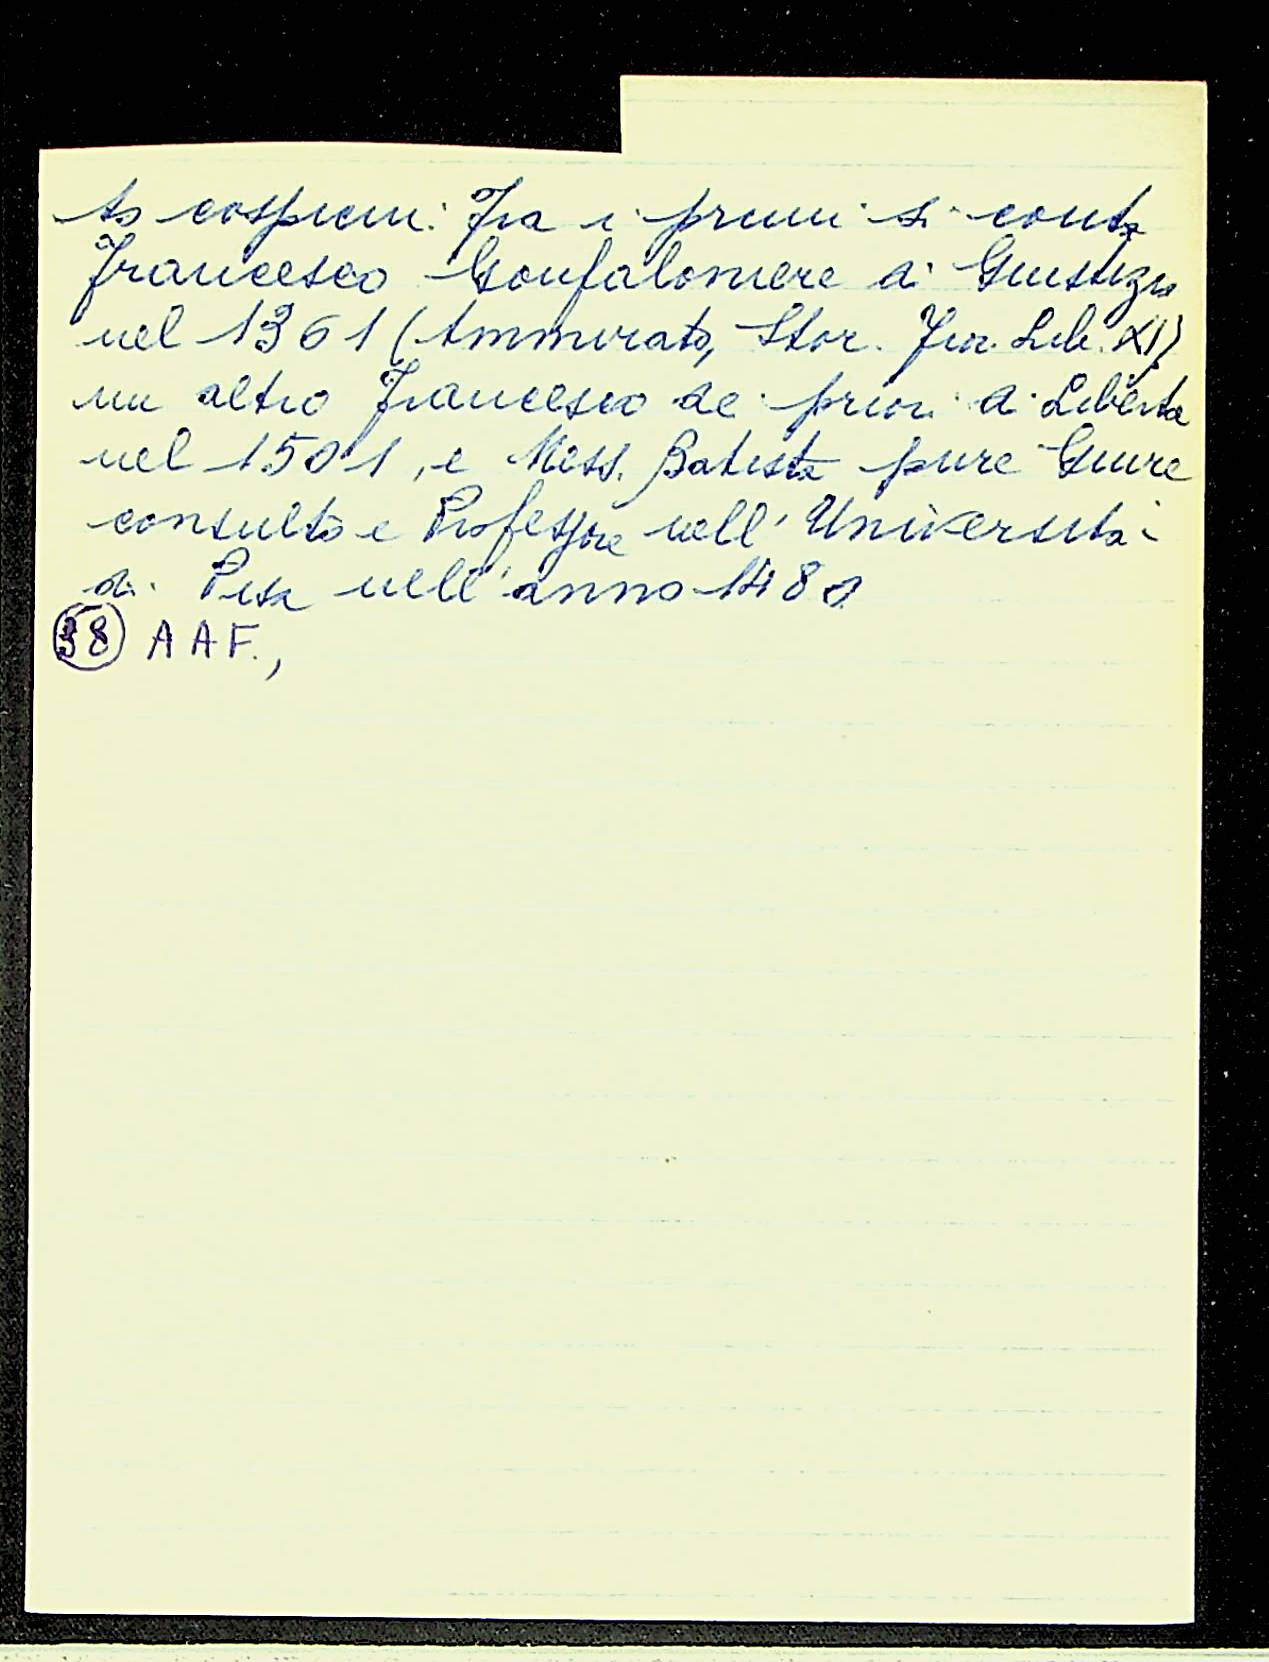 to cospicui. Fra i primi si conta
Francesco Gonfaloniere di Giustizia
nel 1361 (Ammirato, Stor. Fior. Lib. XI)
un altro Francesco de priori di Libertà
nel 1501, e Mess. Batista pure Giure
consulto e Professore nell' Università
di Pisa nell' anno 1480
38 A A F.,